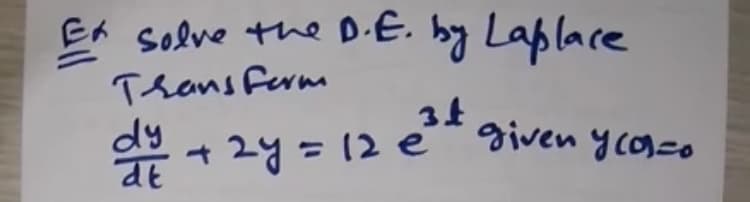 Ex Solve the D.E. by Laplace
Transform
dy/dt + 2y = 12 e^3t given y(0)=0